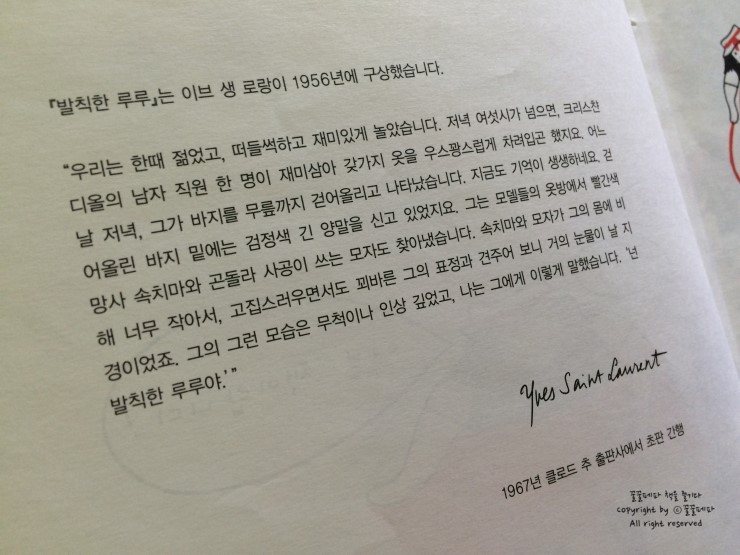 『발칙한 루루』는 이브 생 로랑이 1956년에 구상했습니다.
"우리는 한때 젊었고, 떠들썩하고 재미있게 놀았습니다. 저녁 여섯시가 넘으면, 크리스챤
디올의 남자 직원 한 명이 재미삼아 갖가지 옷을 우스꽝스럽게 차려입곤 했지요. 어느
날 저녁, 그가 바지를 무릎까지 걷어올리고 나타났습니다. 지금도 기억이 생생하네요. 걷
어올린 바지 밑에는 검정색 긴 양말을 신고 있었지요. 그는 모델들의 옷방에서 빨간색
망사 속치마와 곤돌라 사공이 쓰는 모자도 찾아냈습니다. 속치마와 모자가 그의 몸에 비
해 너무 작아서, 고집스러우면서도 꾀바른 그의 표정과 견주어 보니 거의 눈물이 날 지
경이었죠. 그의 그런 모습은 무척이나 인상 깊었고, 나는 그에게 이렇게 말했습니다. '넌
발칙한 루루야.'"
Yves Saint Laurent
1967년 클로드 추 출판사에서 초판 간행
꿀꿀페파 책을 즐기다
copyright by ⓒ꿀꿀페파
All right reserved